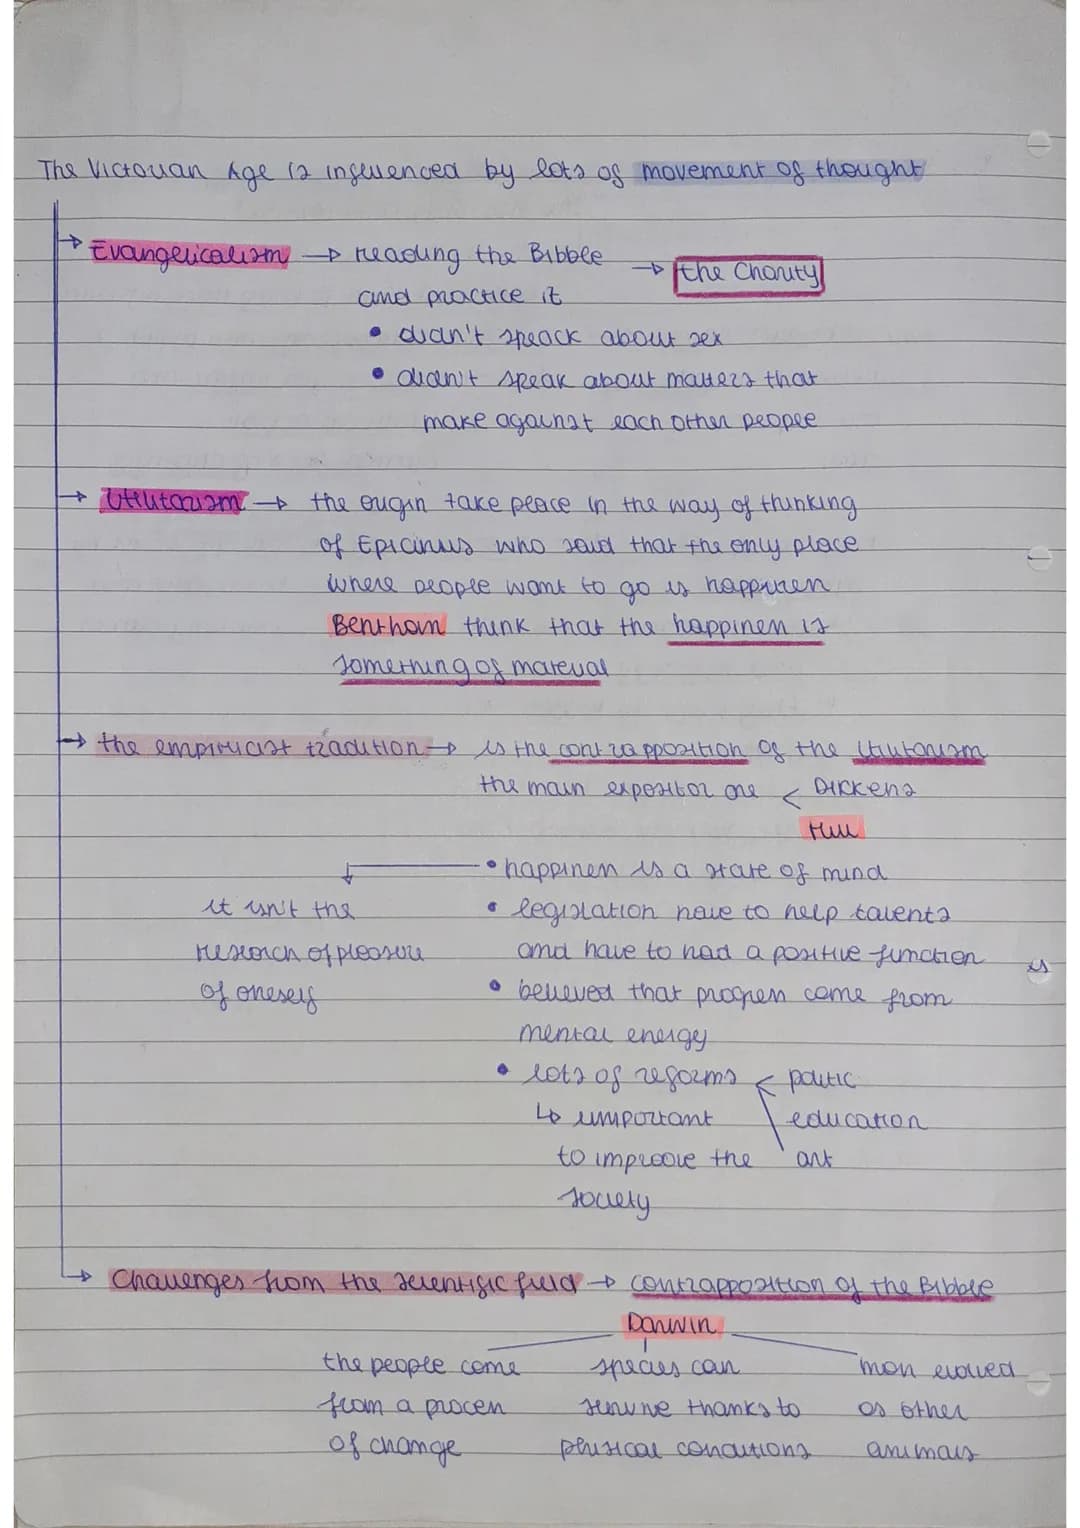 The Victorian Age is influenced by lots of movement of thought
→ Evangelicalism → reading the Bibble → the Charity
and practice it
• didn't speack about sex
• didn't speak about matters that
make against each other people
→ Utilitarism → the origin take peace in the way of thinking
of Epicinus who said that the only place
where people want to go is happiness
Bentham think that the happiness is
something of material
→ the empiricist tradition → is the contrapposition of the Utilitarism
the main expositor are < Dickens
Mill
• happiness is a state of mind
it isn't the
research of pleasure
of oneself
• legislation have to help talents
and have to had a positive function
is
• believed that progress come from
mental energy
• lots of reforms < politic
education
art
↳ important
to improove the
society
→ Challenges from the scientific field → contrapposition of the Bibble
Darwin
the people come
from a process
of change
species can
survive thanks to
phisical conditions
man evolved
as other
animals